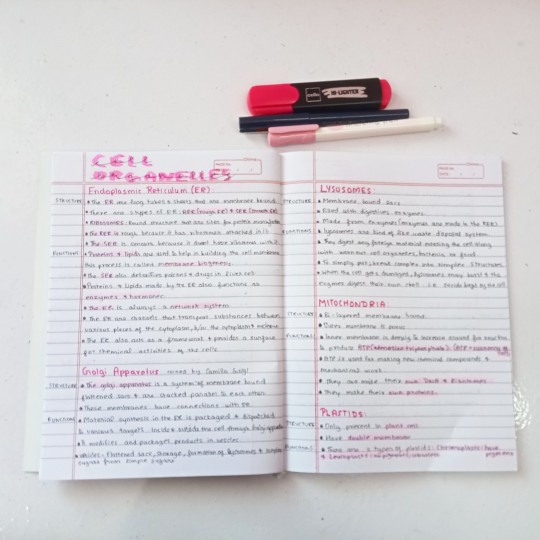 cello
HI-LIGHTER
CELL
ORGANELLES
Endoplasmic Reticulum (ER):
STRUCTURE
• The ER are long tubes & sheets that are membrane bound
• There are 2 types of ER: RER (rough ER) & SER (smooth ER)
• Ribosomes: found attached and are sites for protein manufacture
• The RER is rough because it has ribosomes attached to it
• The SER is smooth because it doesn't have ribosomes with it.
FUNCTIONS
• Proteins & lipids are used to help in building the cell membrane
this process is called membrane biogenesis.
• The SER also detoxifies poisons & drugs in liver cell
• Proteins & Lipids made by the ER also functions as
enzymes & hormones.
• The ER is always a network system
• The ER are channels that transport substances between
various places of the cytoplasm, b/w the cytoplasm & nucleus
• The ER also acts as a framework & provides a surface
for chemical activities of the cells
Golgi Apparatus: named by Camillo Golgi
STRUCTURE
• The golgi apparatus is a system of membrane bound
flattened sacs & are stacked parallel to each other.
• These membranes have connections with ER.
FUNCTIONS
• Material synthesis in the ER is packaged & dispatched
to various targets inside & outside the cell through golgi apparatus
• It modifies and packages products in vesicles
• Vesicles: flattened sacs, storage, formation of lysosomes & complex
sugars from simple sugars
LYSOSOMES:
STRUCTURE
• Membrane bound sacs
• Filled with digestive enzymes
• Made from enzymes (enzymes are made in the RER)
FUNCTIONS
• Lysosomes are kind of like waste disposal system
• They digest any foreign material entering the cell along
with worn out cell organelles, bacteria or food
• To simply put, break complex into simpler structures
• When the cell gets damaged, lysosomes may burst & the
enzymes digest their own cell i.e. suicide bags of the cell
MITOCHONDRIA:
STRUCTURE
• Bi-layered membrane bound
• Outer membrane is porous
FUNCTIONS
• Inner membrane is deeply to increase surface for reaction
to produce ATP (Adenosine Tri phosphate) (ATP = currency of cell)
• ATP is used for making new chemical compounds &
mechanical work
• They can make their own DNA & Ribosomes
• They make their own proteins.
PLASTIDS:
STRUCTURE
• Only present in plant cells
• Have double membranes
FUNCTIONS
• There are 2 types of plastids: Chromoplasts: have pigments
& Leucoplasts: no pigments, colourless